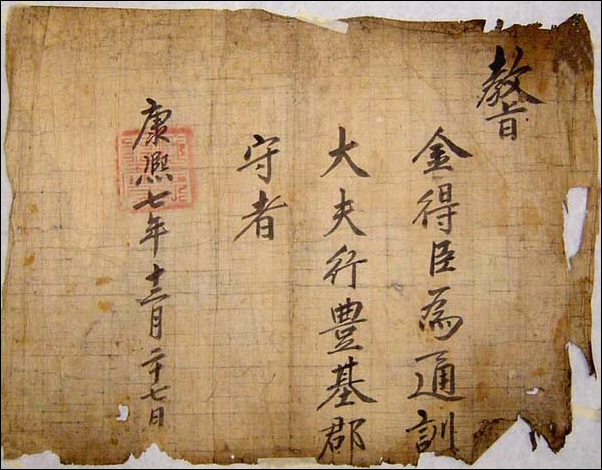 敎旨
金得臣為通訓
大夫行豊基郡
守者
康熙七年十二月二十七日